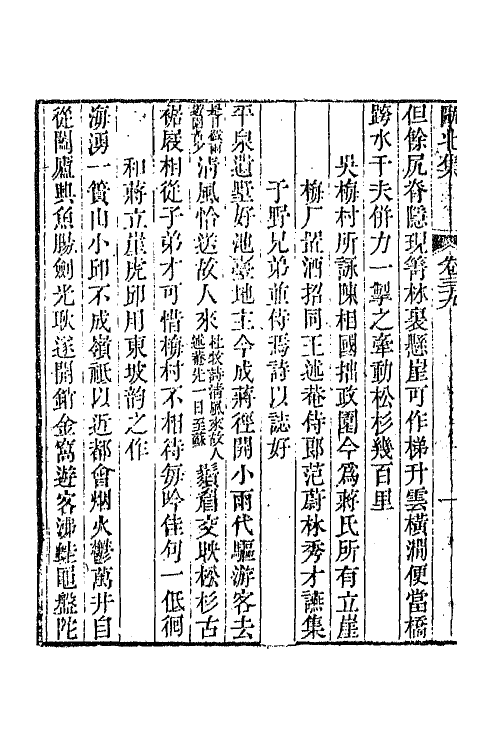 甌北集 卷三九 一
但餘尻脊隱現箐林裏懸崖可作梯升雲橫澗便當橋
跨水千夫併力一掣之牽動松杉幾百里
吳梅村所詠陳相國拙政園今爲蔣氏所有立崖
梅厂置酒招同王述菴侍郎范蔚林秀才讌集
于野兄弟並侍焉詩以誌好
平泉遺墅好池臺地主今成蔣徑開小雨代驅游客去
是日微雨遊園者少清風恰送故人來杜牧詩清風來故人述菴先一日至蘇鬚眉交映松杉古
裙屐相從子弟才可惜梅村不相待每吟佳句一低徊
和蔣立崖虎邱用東坡韵之作
海湧一簣山小邱不成嶺祗以近都會烟火鬱萬井自
從闔廬興魚腸劍光耿遂開銷金窩遊客沸蛙黽盤陀